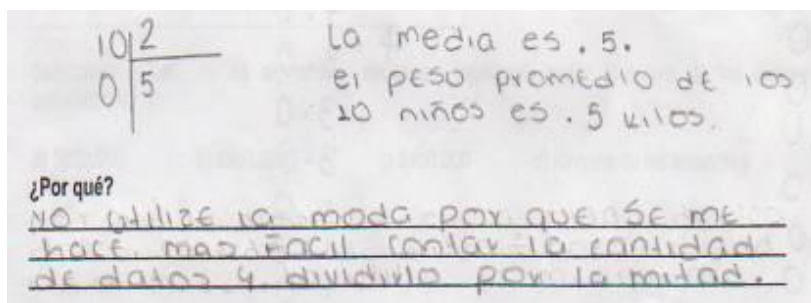 10 2
0 5
la media es . 5.
el peso promedio de los
10 niños es . 5 kilos.
¿Por qué?
NO utilize la moda por que se me
hace mas facil contar la cantidad
de datos y dividirlo por la mitad.